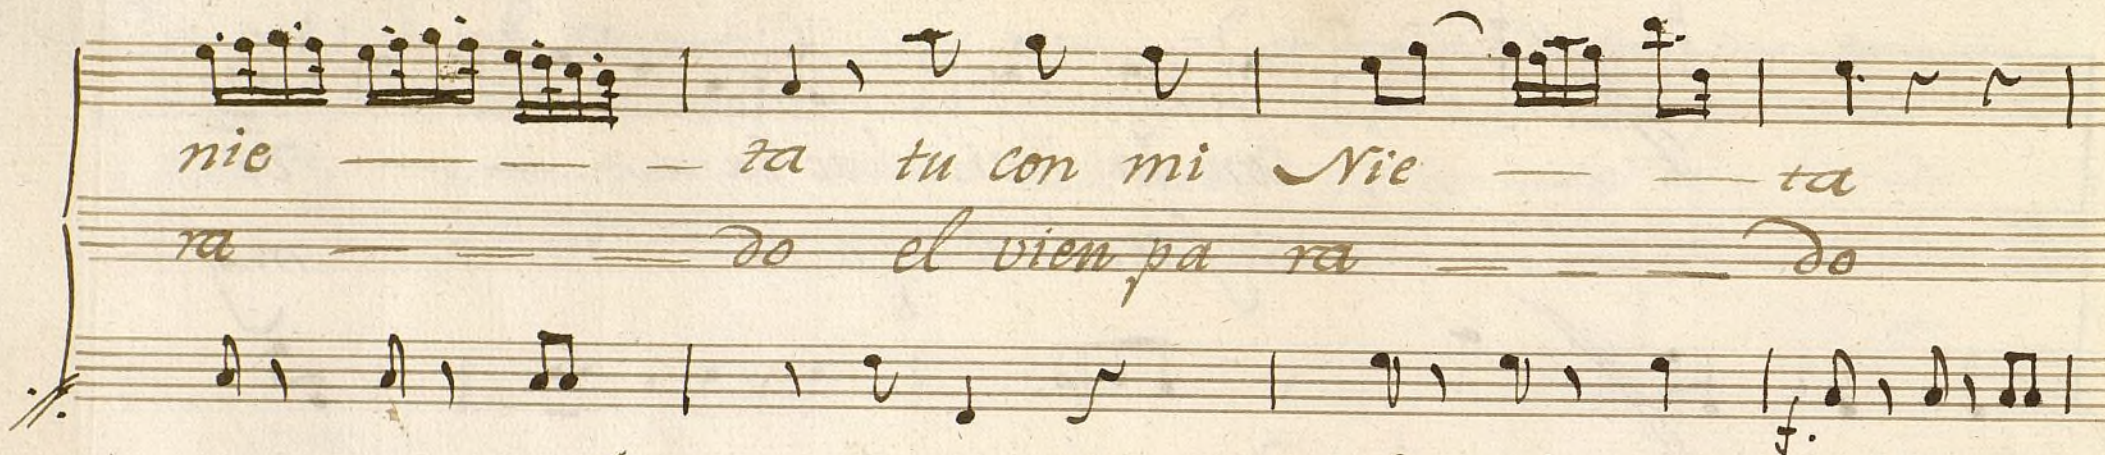 nie — — — ta tu con mi Nie — — ta
ra — — — do el vien pa ra — — — do
f.